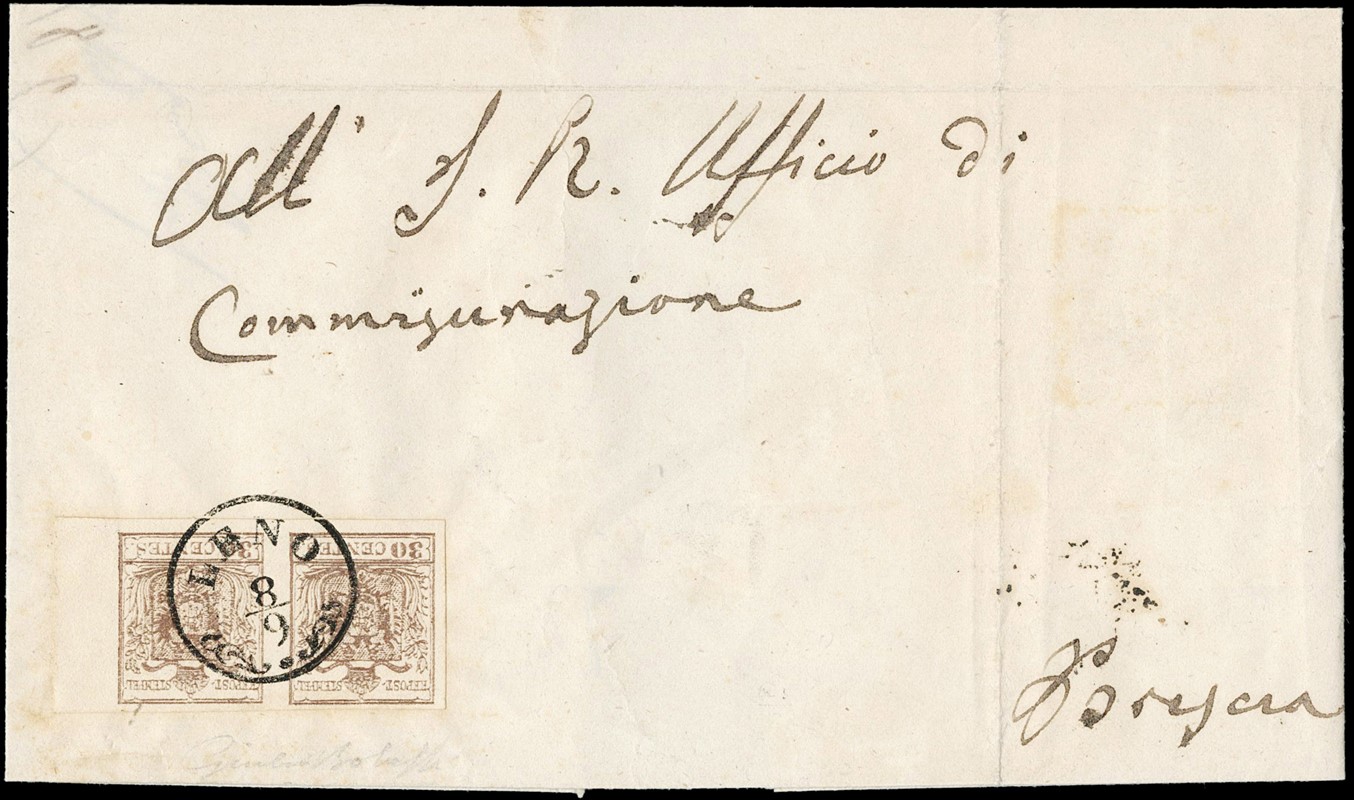 All' I. R. Ufficio di
Commisurazione
LENO
8/9
30 CENTES
30 CENTES
KKPOST-STEMPEL
KKPOST-STEMPEL
Brescia
Giulio Bolaffi